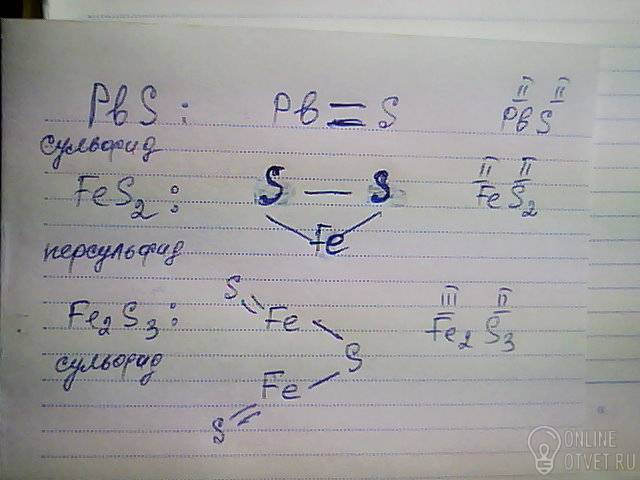 PbS: Pb=S II II
PbS
сульфид
FeS2: S—S II II
Fe FeS2
персульфид
S
Fe2S3: Fe III II
S Fe2S3
сульфид Fe
S
ONLINE
OTVET.RU